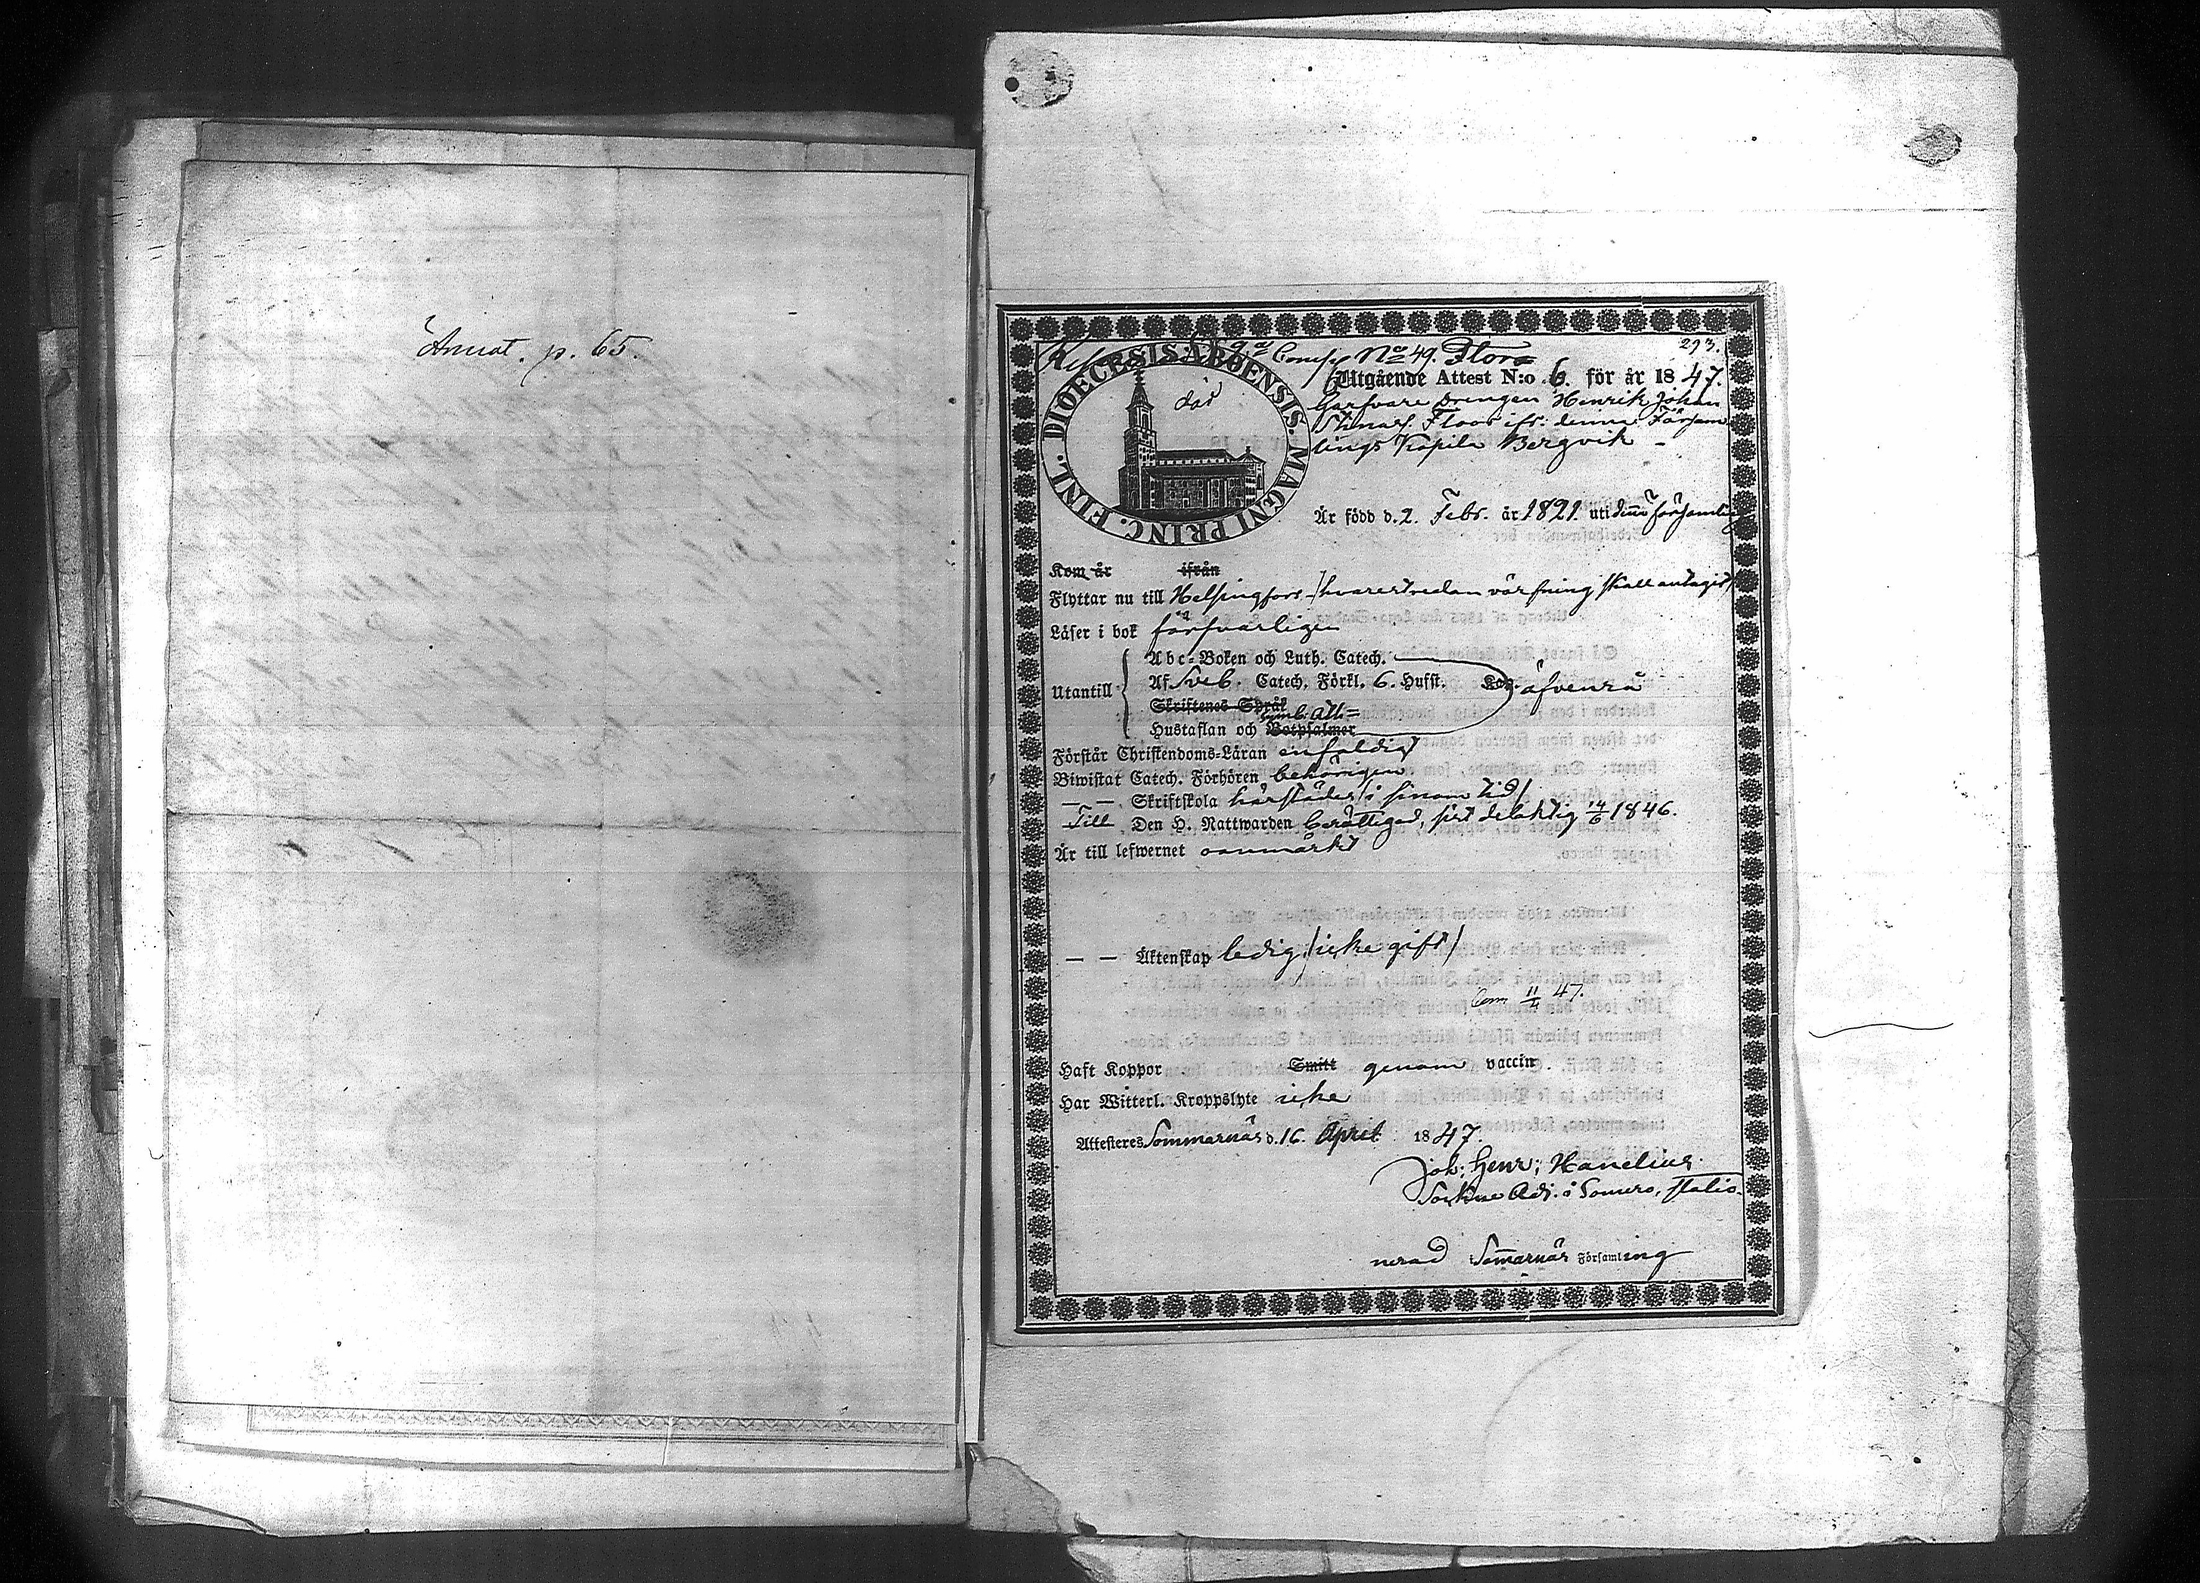 Annot. p. 65.
293.
9de Comp No 49. Flora
DIOECESIS ABOENSIS. MAGNI PRINC. FINL.
död
Utgående Attest N:o 6. för år 1847.
Garfvare Drengen Henrik Johan
Floor ifr: denna Försam
lings Kapila Bergvik –
Är född d. 2. Febr. år 1821. uti denna församling
Kom år ifrån
Flyttar nu till Helsingfors /hvarest redan värfning skall antagit/
Läser i bok försvarligen
Abc-Boken och Luth. Catech.
Utantill Af Sveb. Catech. Förkl. 6. Hufst. Kap. äfvenså
Skriftenes Språk
Symb. Ath=
Hustaflan och Botpsalmer
Förstår Christendoms-Läran enfaldigt
Biwistat Catech. Förhören behörigen
— — Skriftskola härstädes /i sinom tid/
Till Den H. Nattwarden berättigad, sist delaktig 14/6 1846.
Är till lefwernet oanmärkt
— — Äktenskap ledig /icke gift/
11/4 47.
Haft Koppor Smitt genom vaccin
Har Witterl. Kroppslyte icke
Attesteres Sommarnäs d. 16. April 1847.
Joh: Henr: Hanelius
Sockne Adj. i Somero, statio-
nerad i Sommarnäs Församling